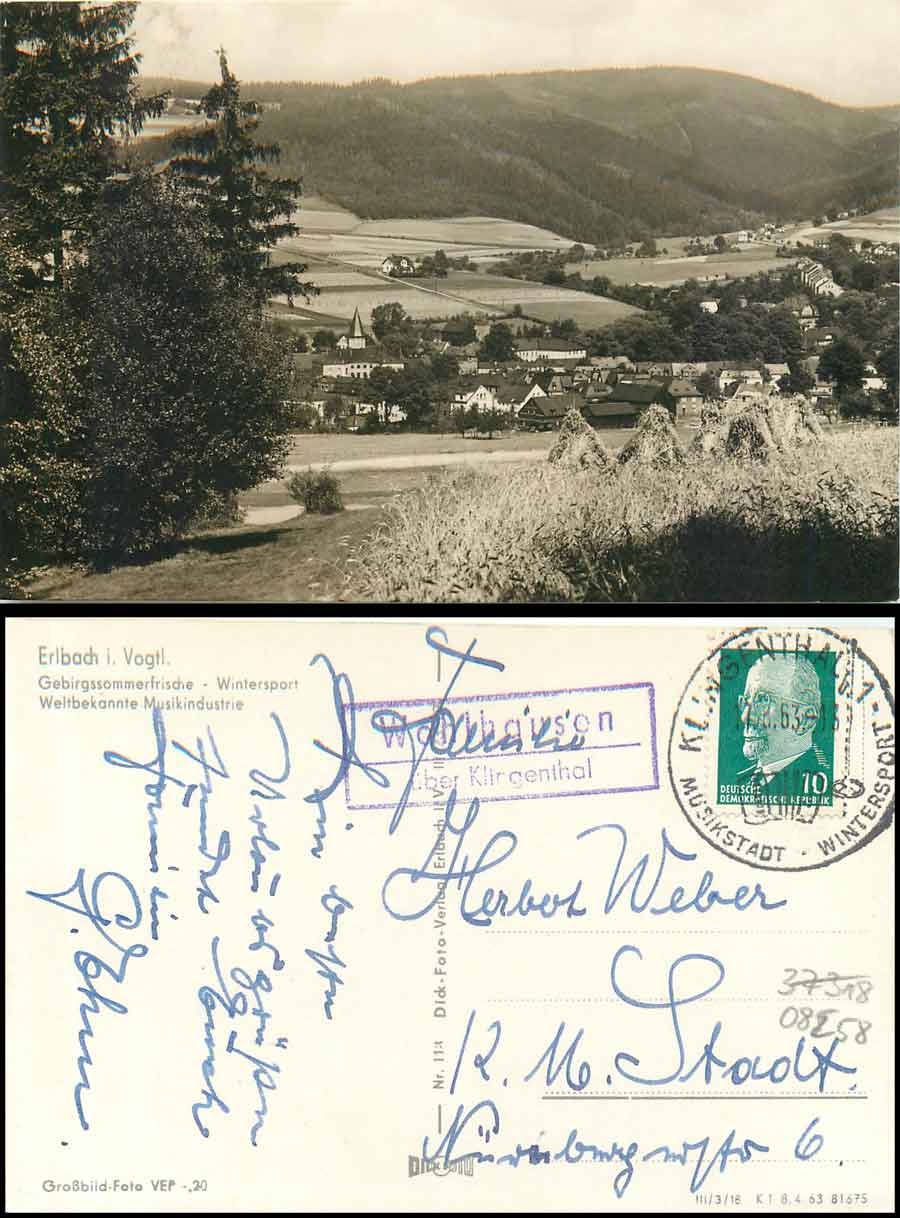 Erlbach i. Vogtl.
Gebirgssommerfrische - Wintersport
Weltbekannte Musikindustrie
Wohlhausen
über Klingenthal
KLINGENTHAL 1
MUSIKSTADT - WINTERSPORT
DEUTSCHE
DEMOKRATISCHE REPUBLIK
10
Familie
Herbot Weber
K. M. Stadt.
Nürnbergerstr 6
37318
08258
Die besten
Urlaubsgrüße
sendet Euch
Familie
Nr. 118 Dick-Foto-Verlag, Erlbach i. V.
DICK FOTO
Großbild-Foto VEP -,20
III/3/18 K 1 8. 4. 63 81675